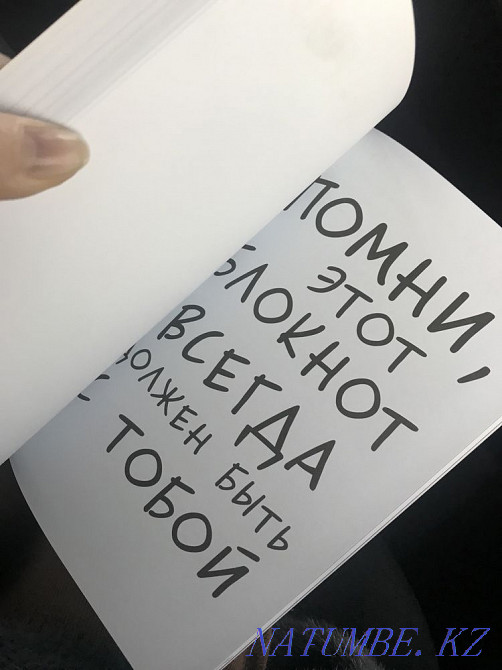 ПОМНИ,
ЭТОТ
БЛОКНОТ
ВСЕГДА
ДОЛЖЕН БЫТЬ
С ТОБОЙ
NATUMBE.KZ